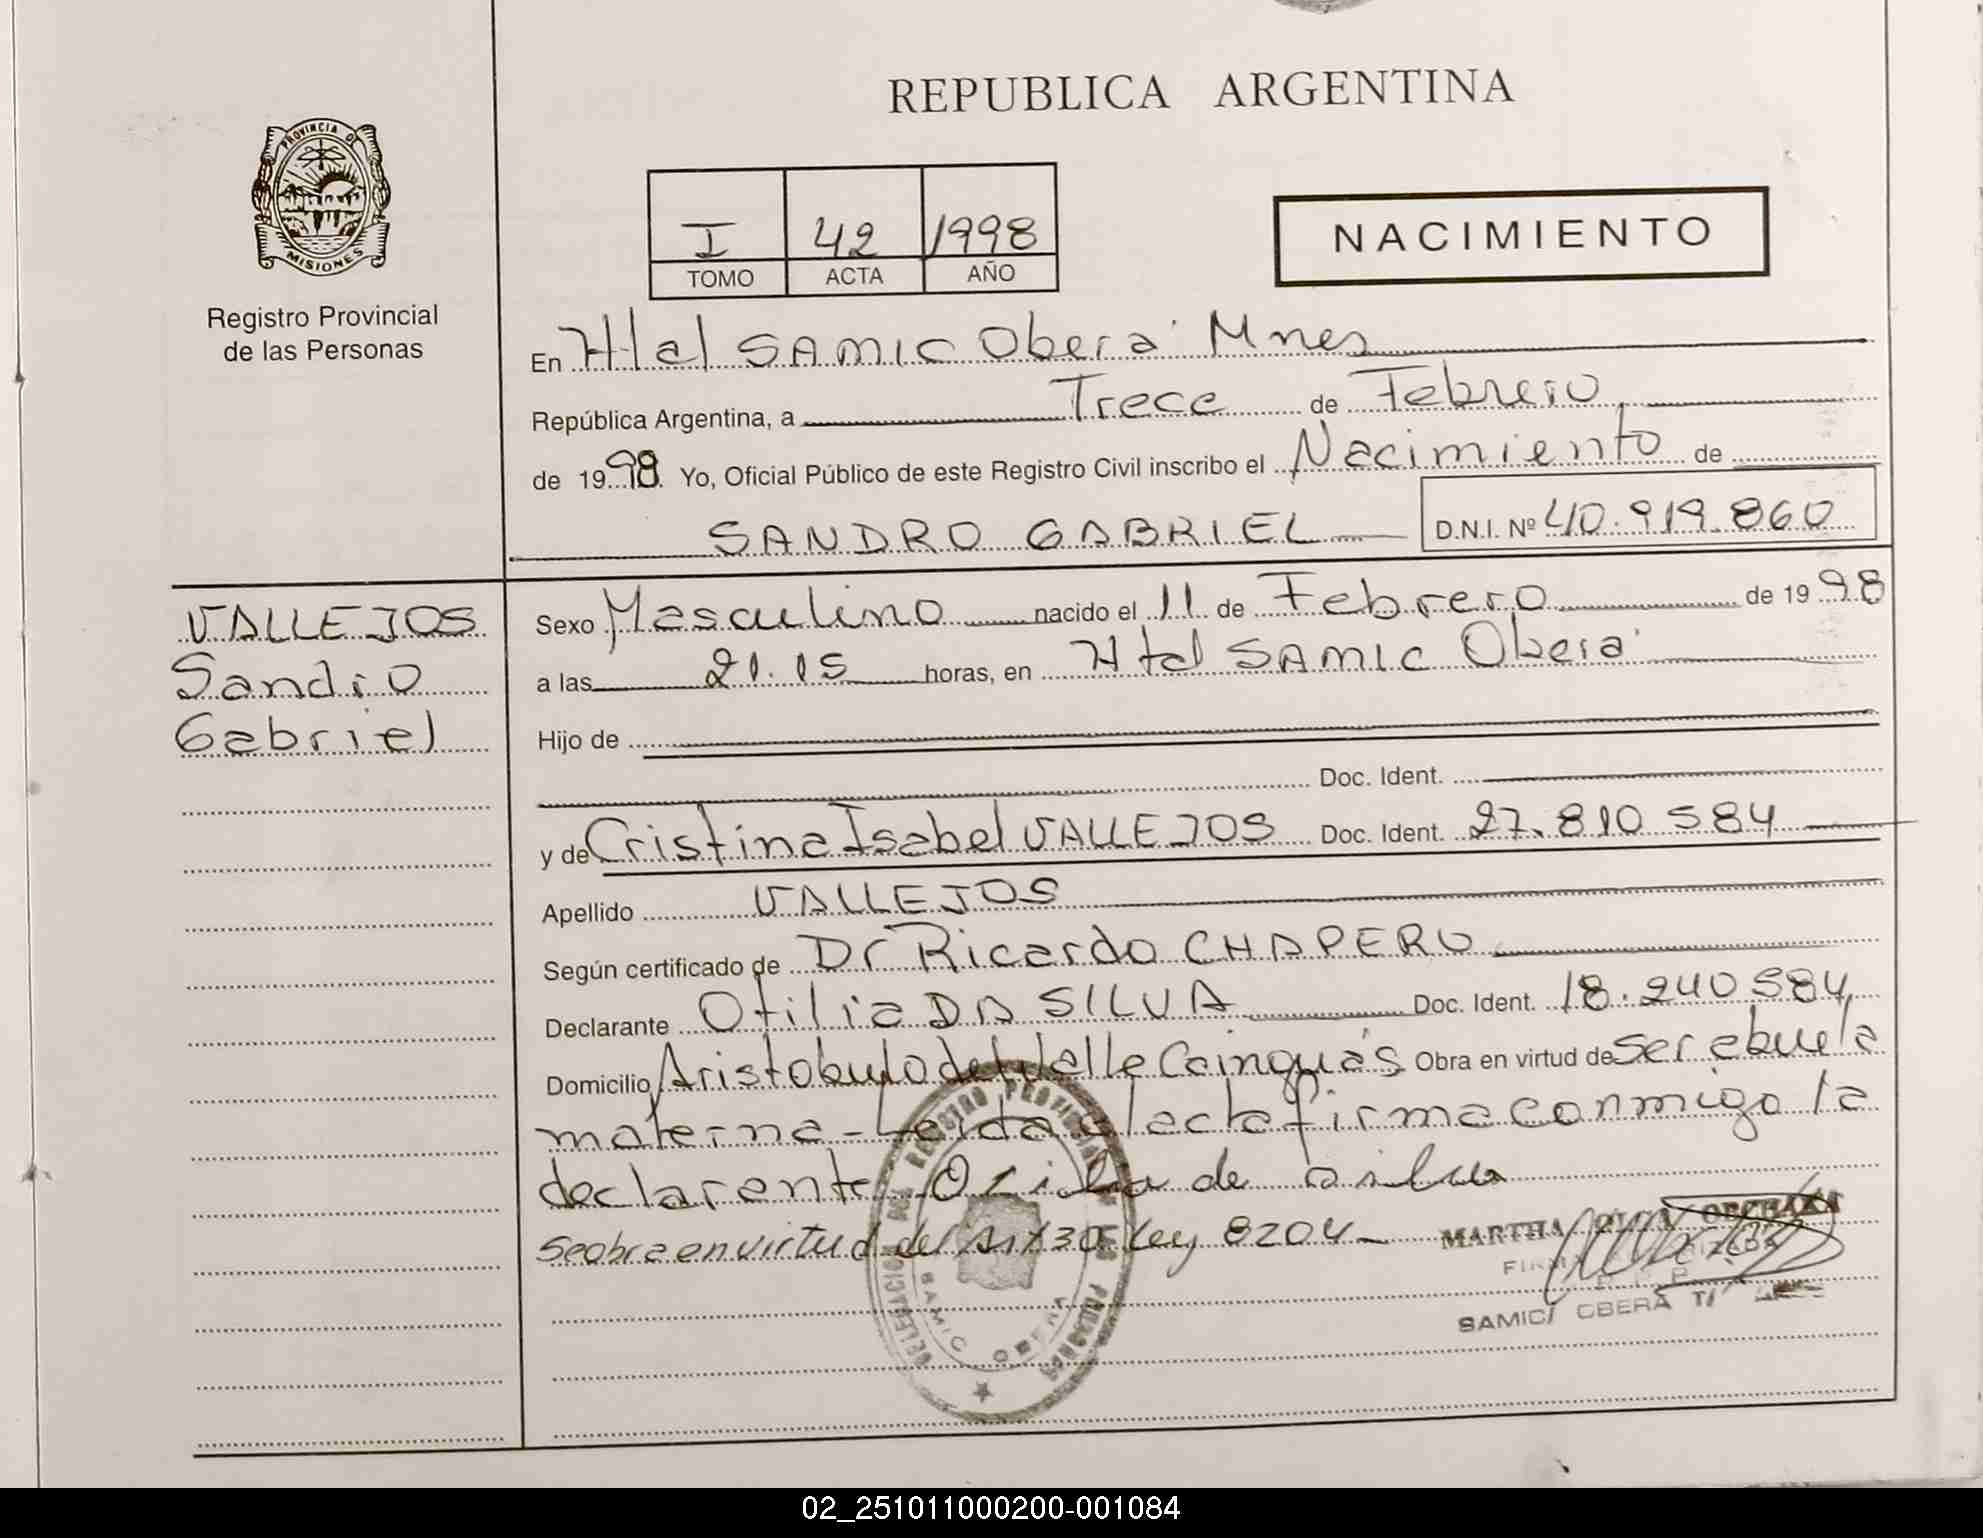 REPUBLICA ARGENTINA
PROVINCIA DE
MISIONES
Registro Provincial
de las Personas
I 42 1998
TOMO ACTA AÑO
NACIMIENTO
En Htal SAMIC Oberá Mnes
República Argentina, a Trece de Febrero,
de 1998. Yo, Oficial Público de este Registro Civil inscribo el Nacimiento de
SANDRO GABRIEL D.N.I. Nº 40.919.860
VALLEJOS
Sandro
Gabriel
Sexo Masculino nacido el 11 de Febrero de 1998
a las 21.15 horas, en Htal SAMIC Oberá
Hijo de
Doc. Ident.
y de Cristina Isabel VALLEJOS Doc. Ident. 27.810 584
Apellido VALLEJOS
Según certificado de Dr Ricardo CHAPERO
Declarante Otilia DA SILVA Doc. Ident. 18.240 584
Domicilio Aristobulo del Valle Cainguás Obra en virtud de ser abuela
materna - Leida el acta firma conmigo la
declarante de silva
Se obra en virtud del Art 30 Ley 8204
DELEGACION DEL REGISTRO PROVINCIAL DE LAS PERSONAS
SAMIC OBERA
MARTHA
SAMIC OBERA
02_251011000200-001084